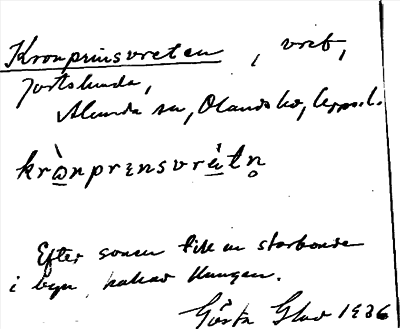 Kronprinsvreten, vret,
Jortslunda,
Alunda sn, Olands hd, Uppsl.
krò̱nprɛnsvrè̱tn̥
Efter sonen till en storbonde
i byn, kallad Kungen.
Gösta Glad 1936